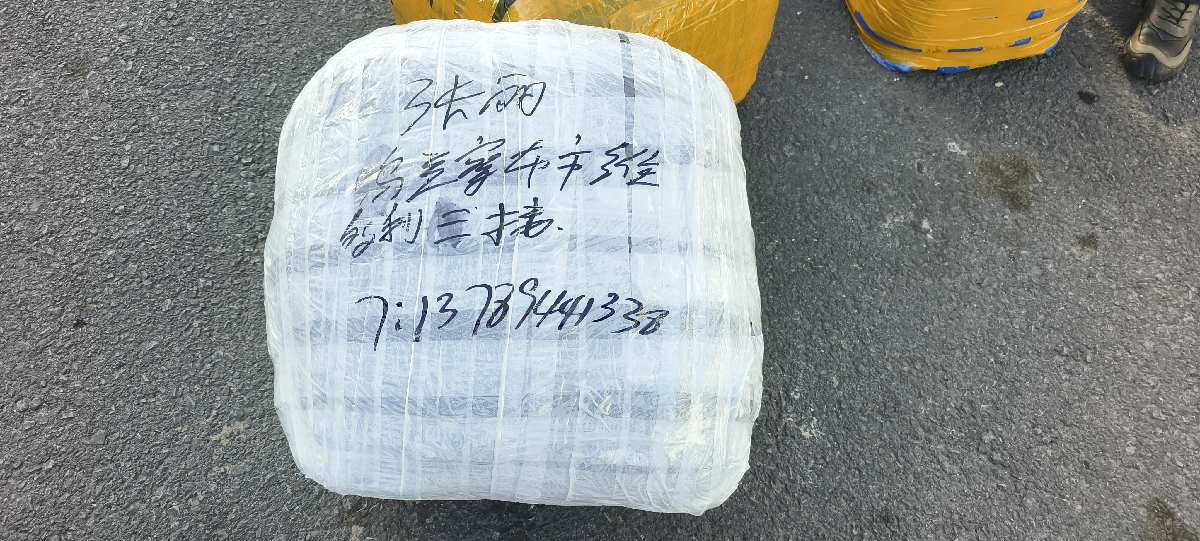 张丽
乌兰察布市维
多利三楼
T:13789441338